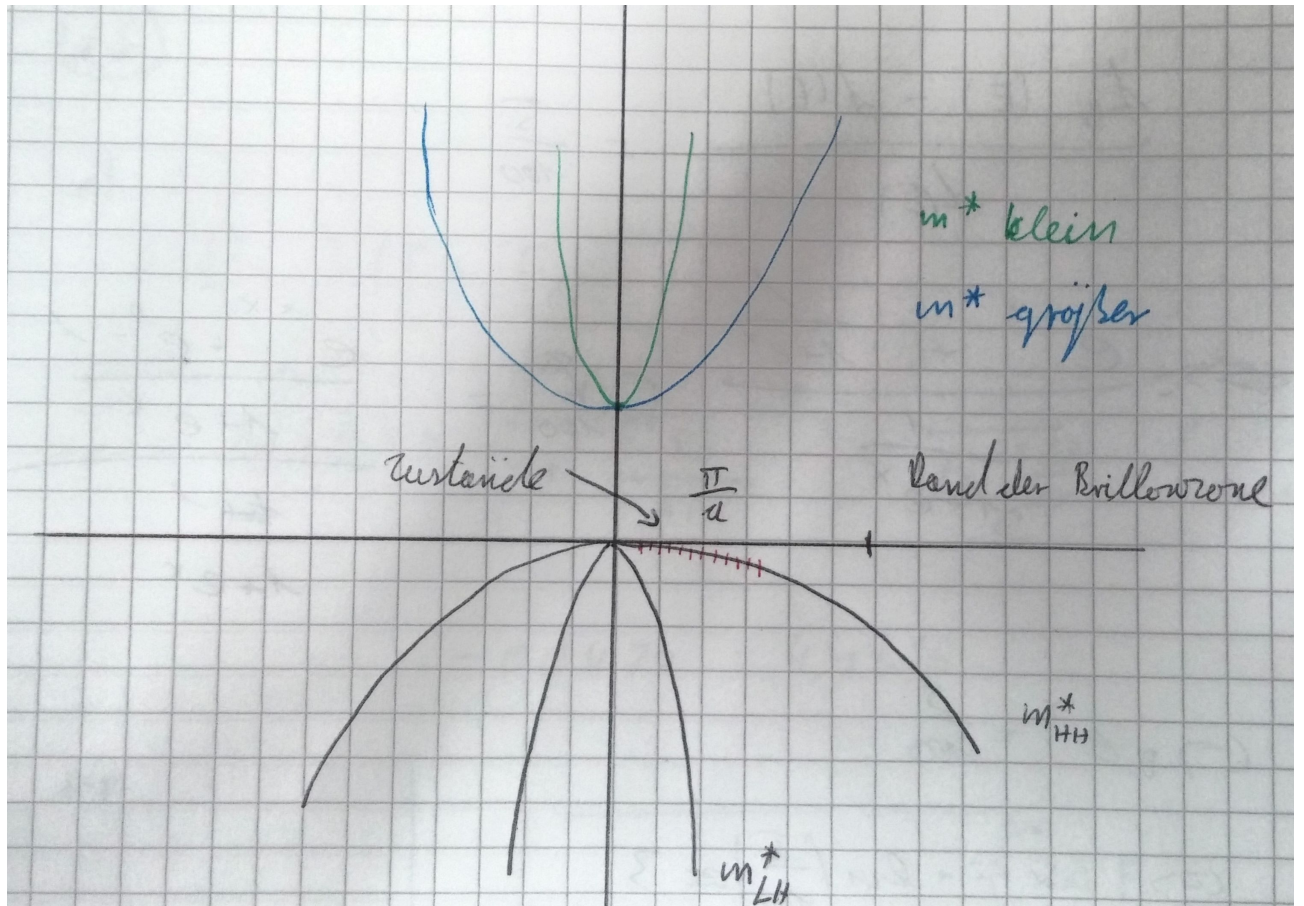 m* klein
m* größer
Zustände
π/a
Rand der Brillowzone
m*HH
m*LH